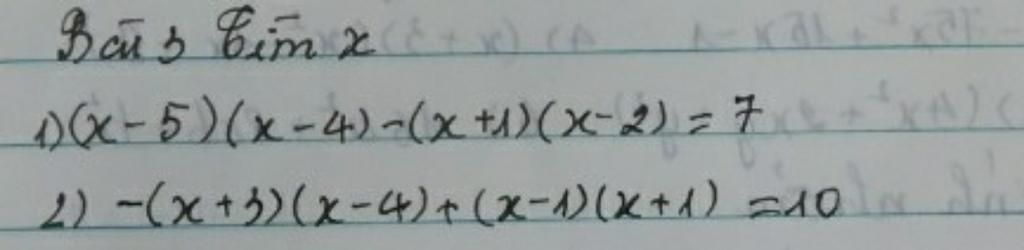 Bài 3 Tìm x
1) (x-5)(x-4)-(x+1)(x-2)=7
2) -(x+3)(x-4)+(x-1)(x+1)=10